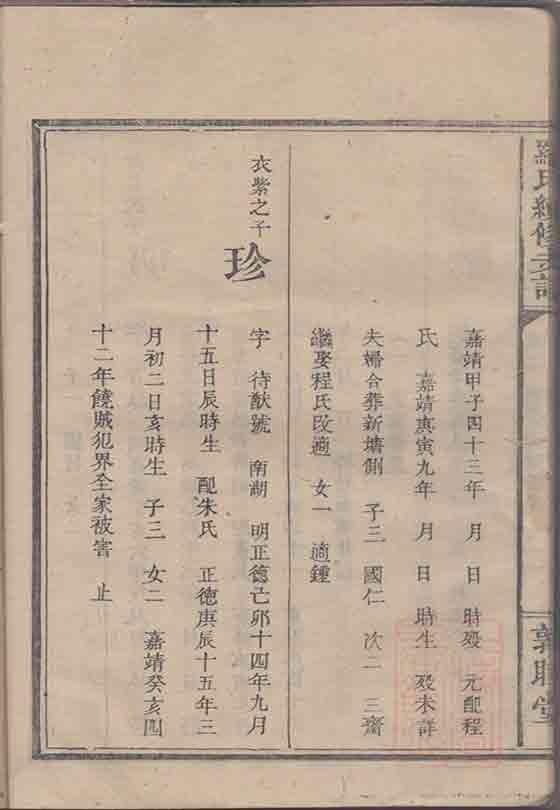 羅氏續修支譜
敦睦堂
嘉靖甲子四十三年 月 日 時殁 元配程
氏 嘉靖庚寅九年 月 日 時生 殁未詳
夫婦合葬新塘側 子三 國仁 次二 三齋
繼娶程氏改適 女一 適鍾
衣紫之子
珍
字 待猷號 南湖 明正德己卯十四年九月
十五日辰時生 配朱氏 正德庚辰十五年三
月初二日亥時生 子三 女二 嘉靖癸亥四
十二年饒贼犯界全家被害 止